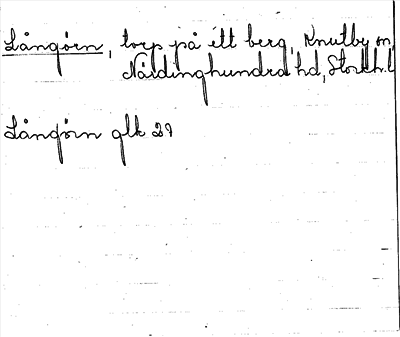 Långörn, torp på ett berg, Knutby sn,
Närdinghundra hd, Stockh.l
Långörn glk 29